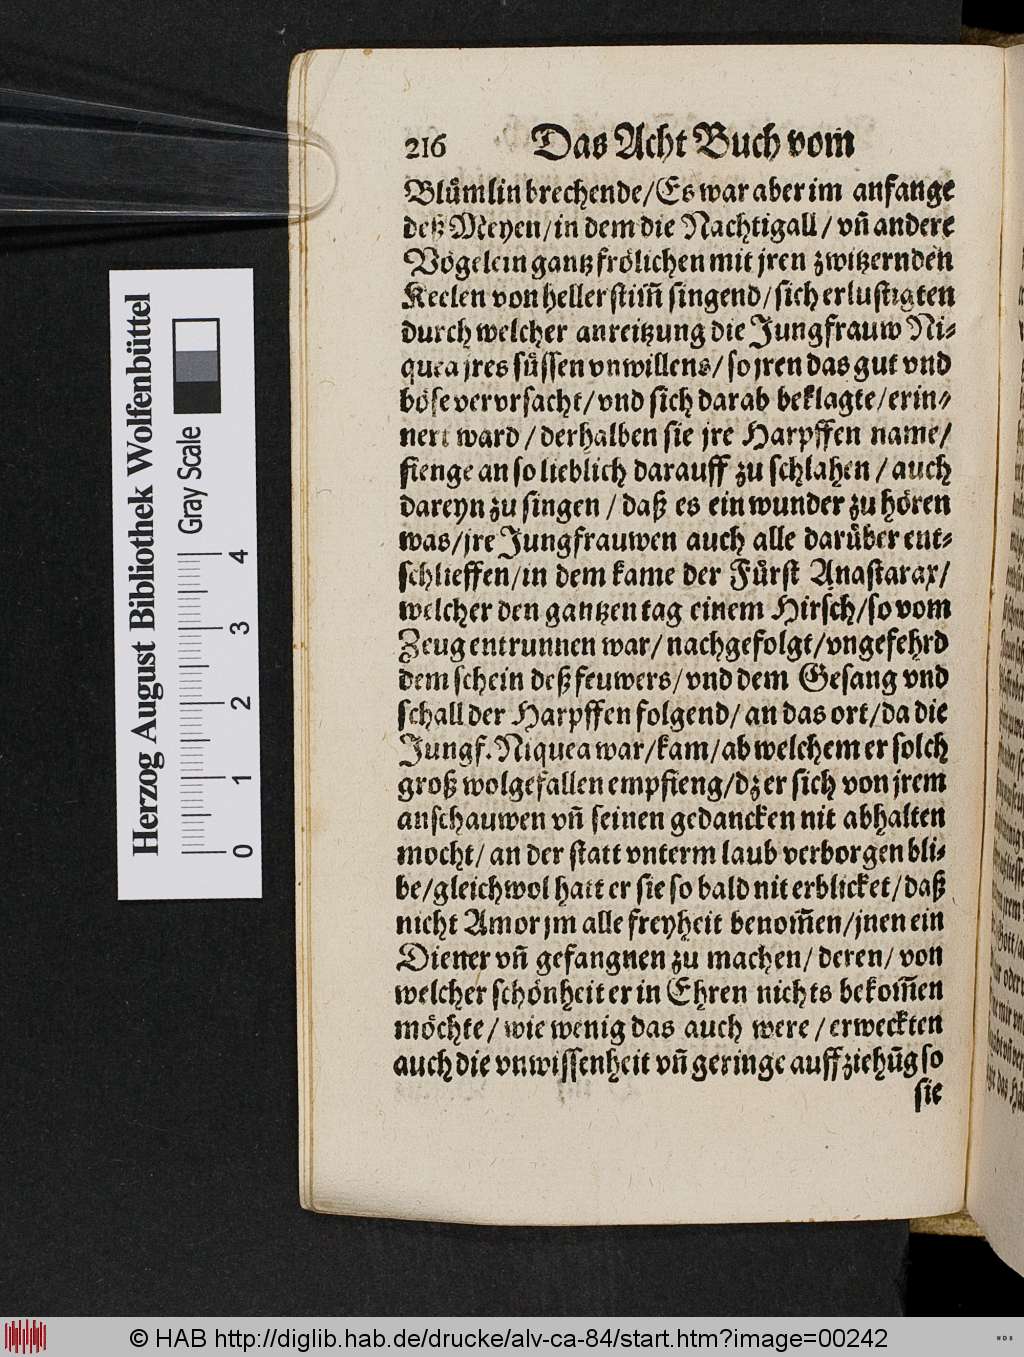 216 Das Acht Buch vom
Blümlin brechende/Es war aber im anfange
deß Meyen/in dem die Nachtigall/ vñ andere
Vögelein gantz frölichen mit jren zwitzernden
Keelen von heller stim̃ singend/sich erlustigten
durch welcher anreitzung die Jungfrauw Ni⸗
quea jres süssen vnwillens/ so jren das gut vnd
böse vervrsacht/vnd sich darab beklagte/erin⸗
nert ward/ derhalben sie jre Harpffen name/
fienge an so lieblich darauff zu schlahen/ auch
dareyn zu singen / daß es ein wunder zu hören
was/jre Jungfrauwen auch alle darüber ent⸗
schlieffen/in dem kame der Fürst Anastarax/
welcher den gantzen tag einem Hirsch/so vom
Zeug entrunnen war/ nachgefolgt/vngefehrd
dem schein deß feuwers/vnd dem Gesang vnd
schall der Harpffen folgend/ an das ort/da die
Jungf. Niquea war/kam/ab welchem er solch
groß wolgefallen empfieng/dz er sich von jrem
anschauwen vñ seinen gedancken nit abhalten
mocht/ an der statt vnterm laub verborgen bli⸗
be/gleichwol hatt er sie so bald nit erblicket/daß
nicht Amor jm alle freyheit benom̃en/jnen ein
Diener vñ gefangnen zu machen/ deren/ von
welcher schönheit er in Ehren nichts bekom̃en
möchte/ wie wenig das auch were/ erweckten
auch die vnwissenheit vñ geringe auffziehūg so
sie
Herzog August Bibliothek Wolfenbüttel
Gray Scale
0 1 2 3 4
© HAB http://diglib.hab.de/drucke/alv-ca-84/start.htm?image=00242